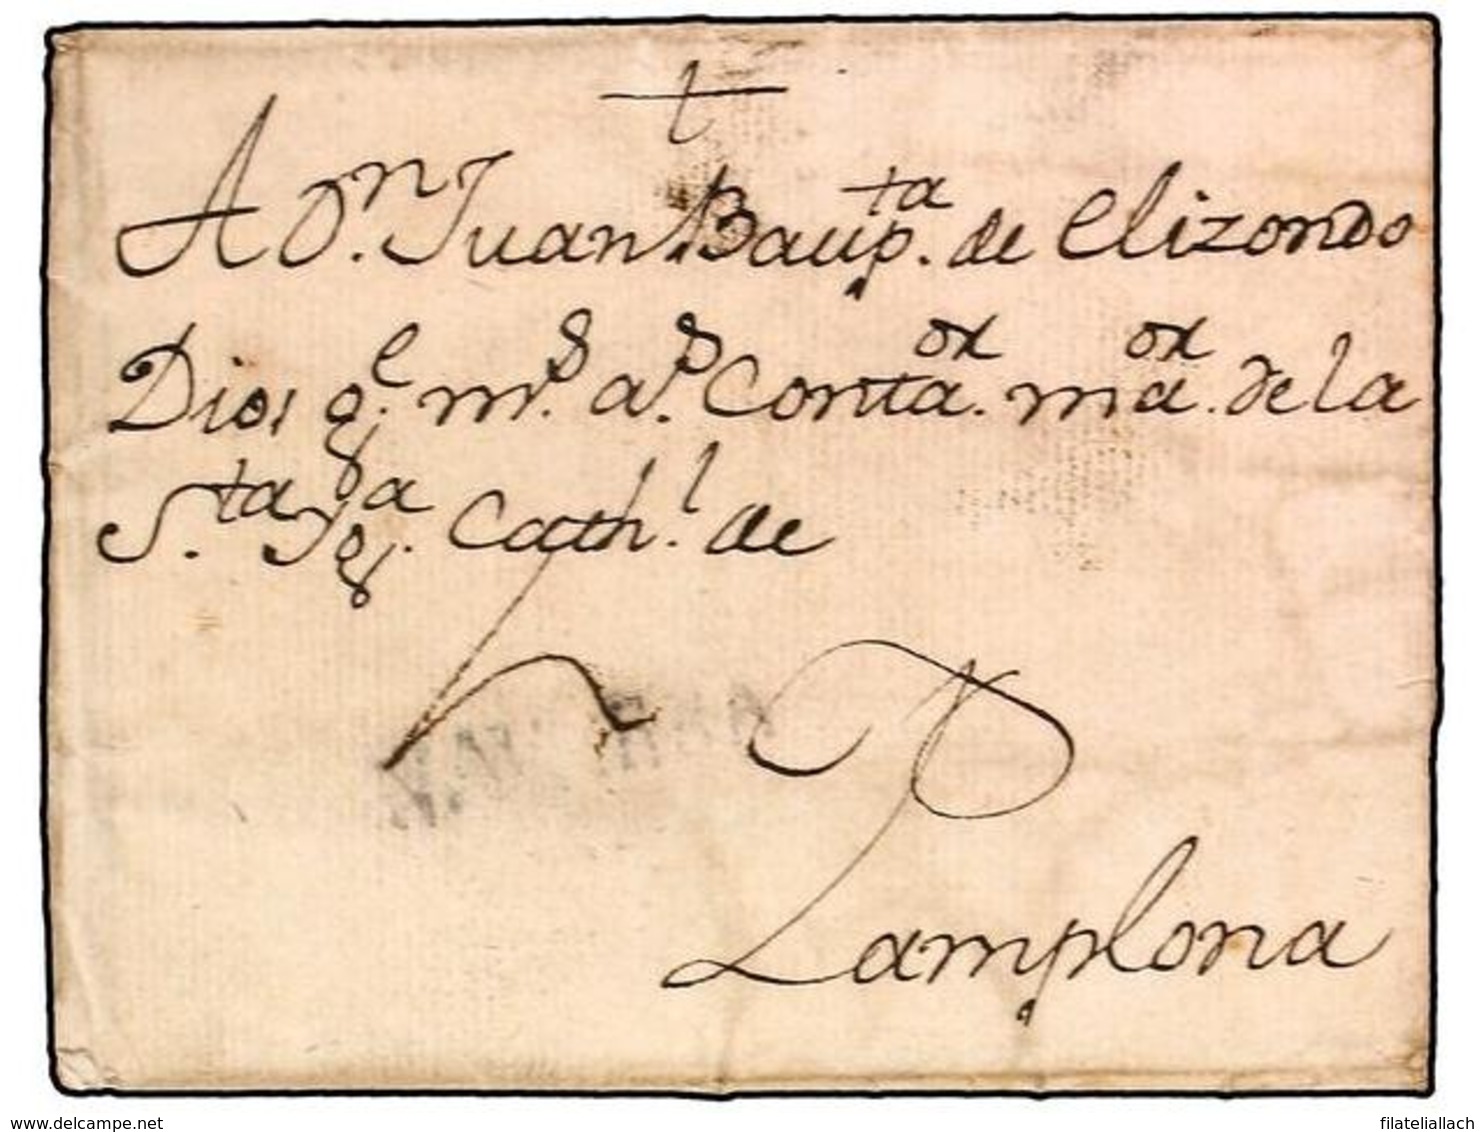 †
A Dn. Juan Baupta. de Elizondo
Dios ge. ms. as. Contaor. maor. de la
Sta. Yga. Cathl. de
Pamplona
www.delcampe.net
filateliallach